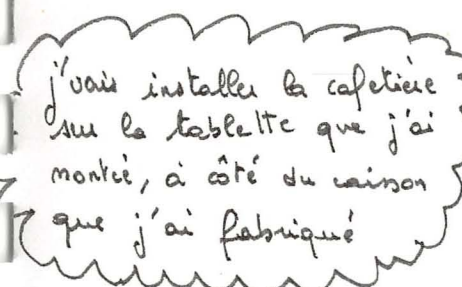 j'vais installer la cafetière
sur la tablette que j'ai
montée, à côté du caisson
que j'ai fabriqué